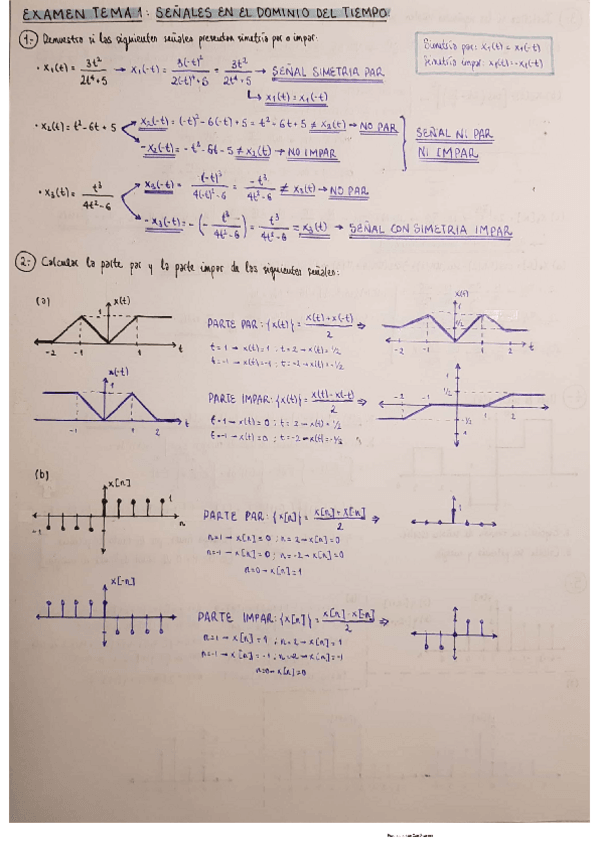 EXAMEN TEMA 1: SEÑALES EN EL DOMINIO DEL TIEMPO.
1.- Demuestra si las siguientes señales presentan simetría par o impar:
Simetría par: x₁(t) = x₁(-t)
Simetría impar: x₁(t) = -x₁(-t)
· x₁(t) = 3t²/2t⁴+5 → x₁(-t) = 3(-t)²/2(-t)⁴+5 = 3t²/2t⁴+5 → SEÑAL SIMETRIA PAR
↳ x₁(t) = x₁(-t)
· x₂(t) = t²-6t+5
x₂(-t) = (-t)²-6(-t)+5 = t²-6t+5 ≠ x₂(t) → NO PAR
-x₂(-t) = -t²-6t-5 ≠ x₂(t) → NO IMPAR
SEÑAL NI PAR
NI IMPAR
· x₃(t) = t³/4t²-6
x₃(-t) = (-t)³/4(-t)²-6 = -t³/4t²-6 ≠ x₃(t) → NO PAR
-x₃(-t) = -(-t³/4t²-6) = t³/4t²-6 = x₃(t) → SEÑAL CON SIMETRIA IMPAR
2.- Calcular la parte par y la parte impar de las siguientes señales:
(a)
x(t)
1
-2 -1 1 t
PARTE PAR: {x(t)} = x(t)+x(-t)/2 ⇒
t=1 → x(t)=1 ; t=2 → x(t)=1/2
t=-1 → x(t)=-1 ; t=-2 → x(t)=-1/2
x(t)
1
1/2
-2 -1 1 2 t
x(-t)
1
-1 1 2 t
PARTE IMPAR: {x(t)} = x(t)-x(-t)/2 ⇒
t=1 → x(t)=0 ; t=2 → x(t)=1/2
t=-1 → x(t)=0 ; t=-2 → x(t)=-1/2
1
1/2
-2 -1 1 2
-1/2
-1
(b)
x[n]
1
n
-1
PARTE PAR: {x[n]} = x[n]+x[-n]/2 ⇒
n=1 → x[n]=0 ; n=2 → x[n]=0
n=-1 → x[n]=0 ; n=-2 → x[n]=0
n=0 → x[n]=1
x[-n]
PARTE IMPAR: {x[n]} = x[n]-x[-n]/2 ⇒
n=1 → x[n]=1 ; n=2 → x[n]=1
n=-1 → x[n]=-1 ; n=-2 → x[n]=-1
n=0 → x[n]=0